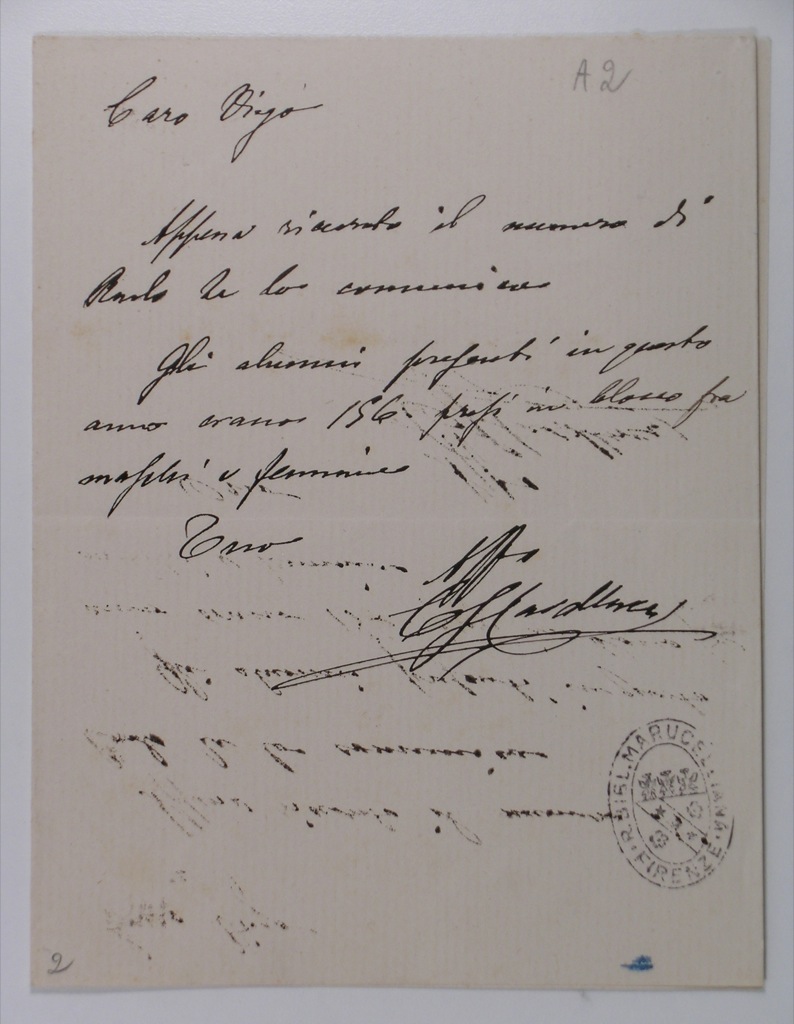 A 2
Caro Vigo
Appena ricevuto il numero di
te lo comunico
Gli alunni presenti in questo
anno erano 156 presi in blocco fra
maschi e femmine
Tuo
Affo
R. BIBL. MARUCELLIANA · FIRENZE ·
2